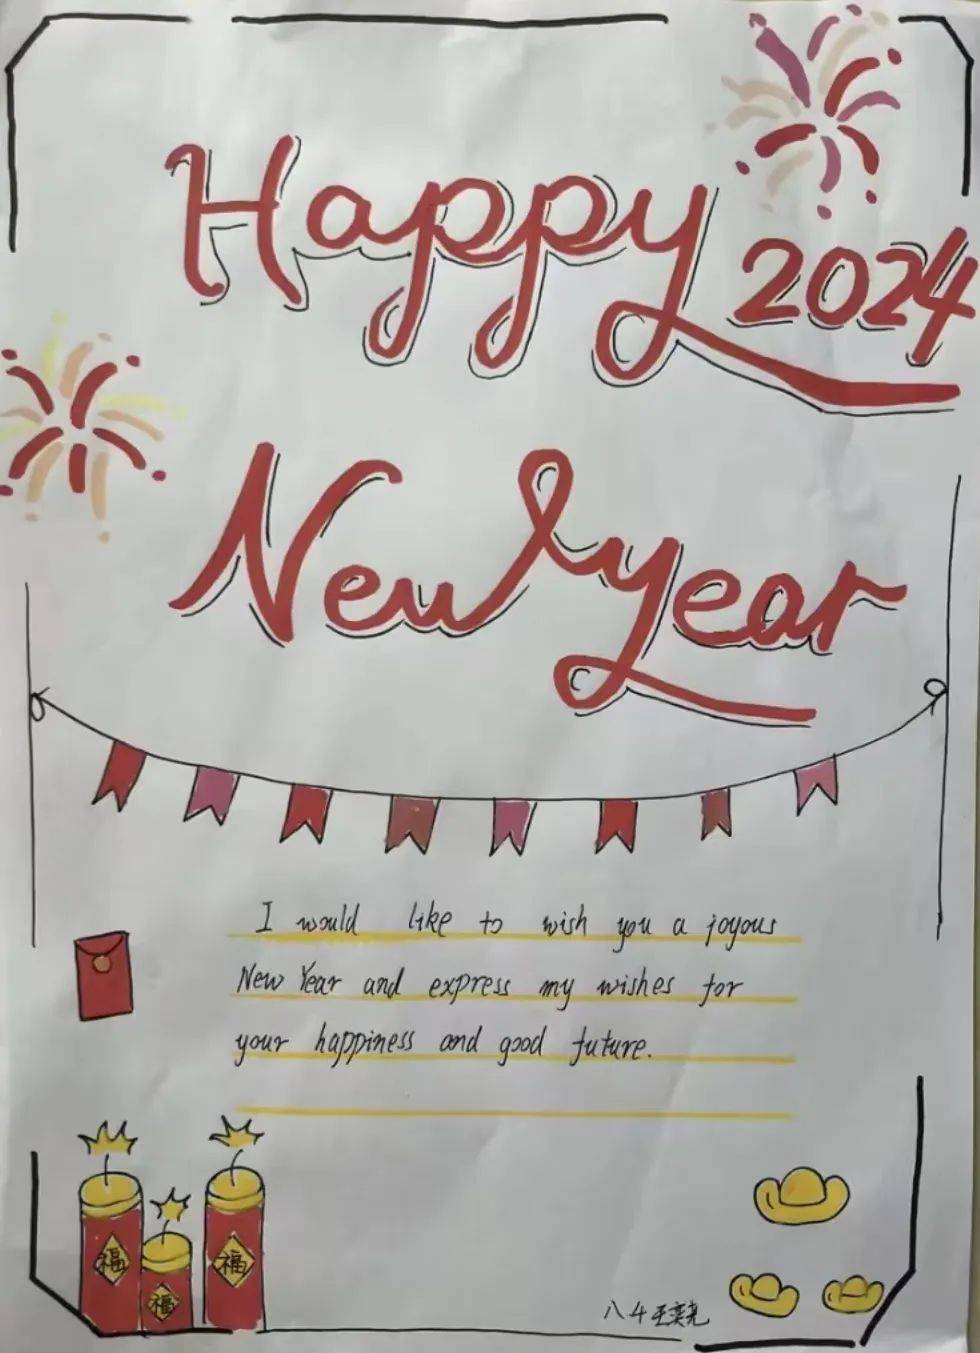 Happy 2024
New Year
I would like to wish you a joyous
New Year and express my wishes for
your happiness and good future.
福
福
福
八4 王奕尧